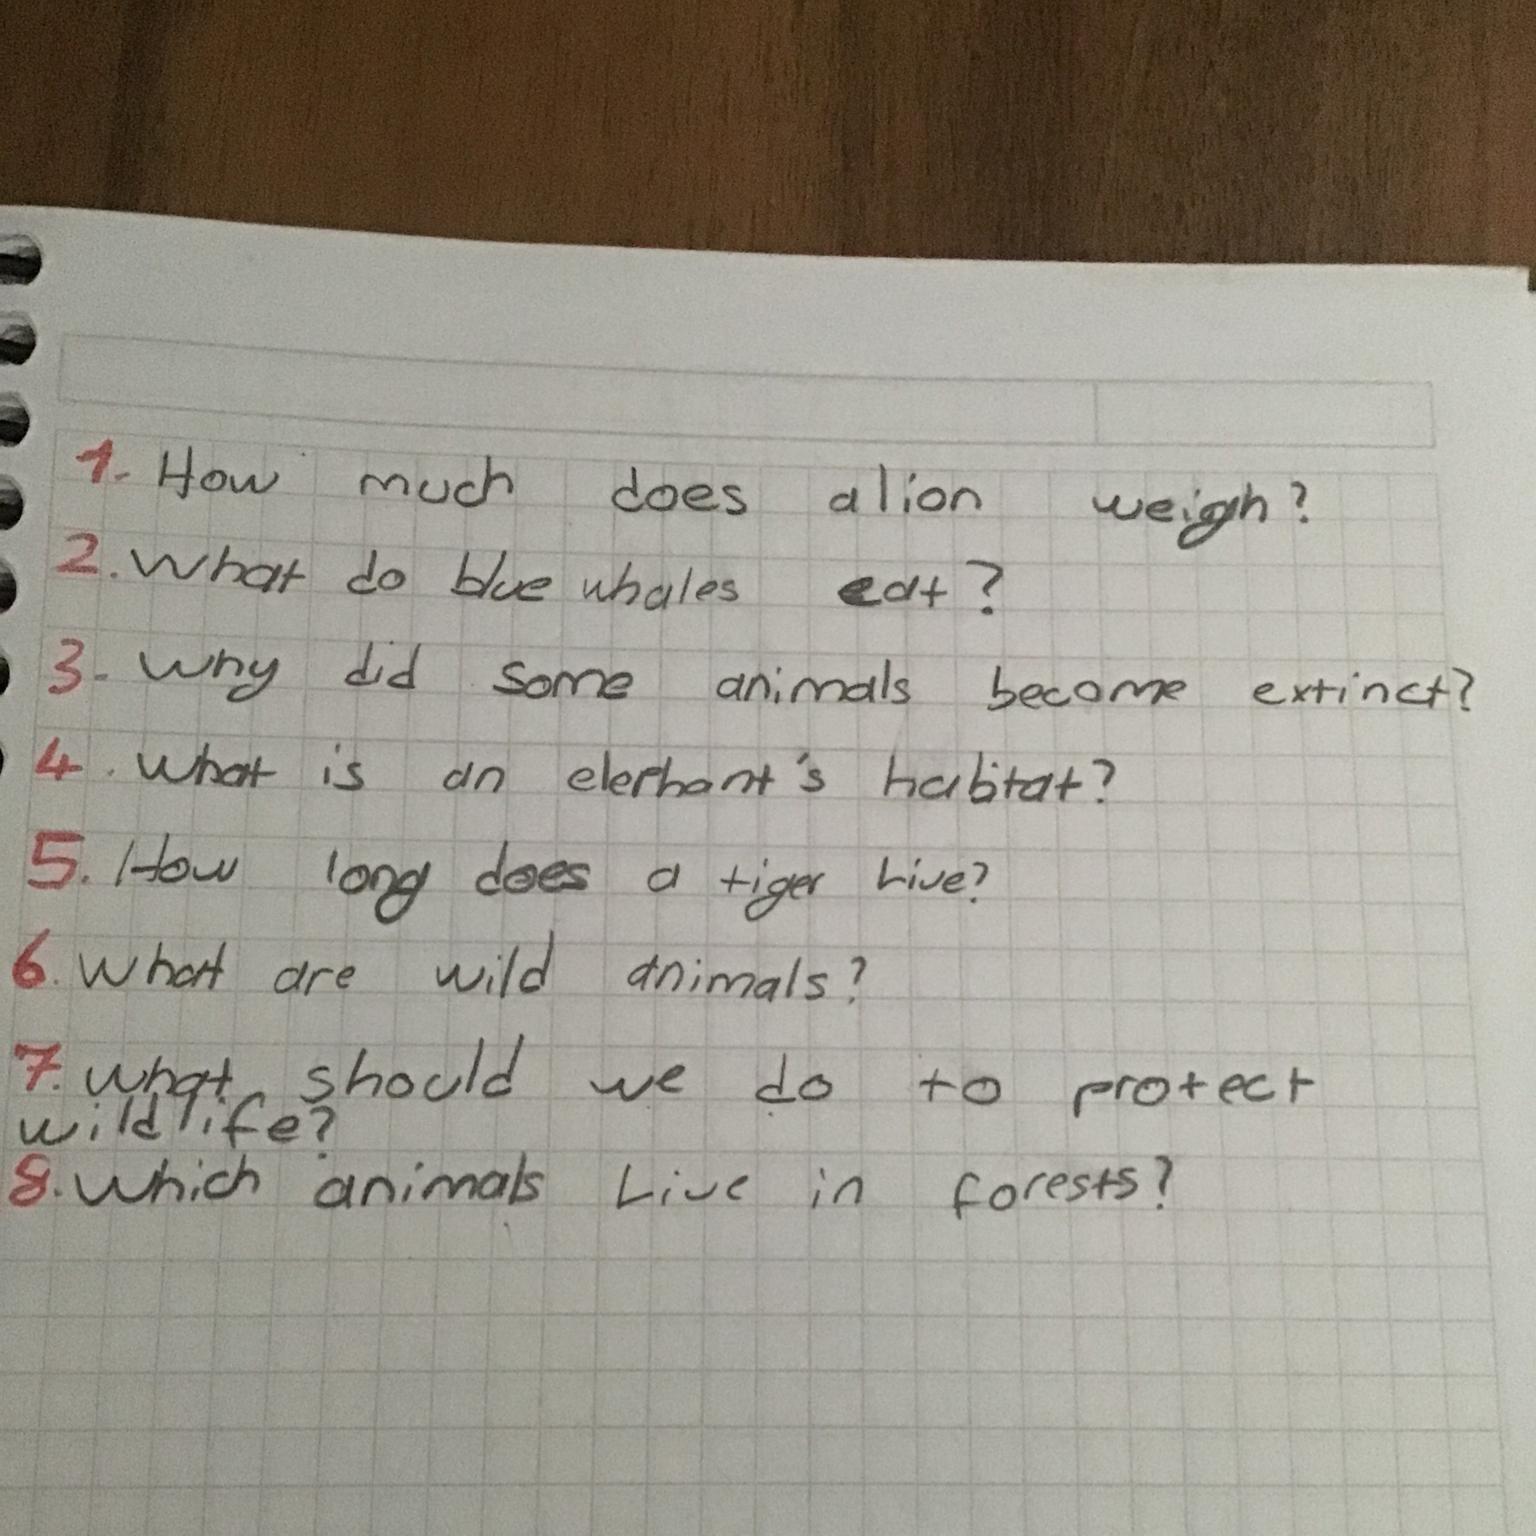 1. How much does a lion weigh?
2. What do blue whales eat?
3. Why did some animals become extinct?
4. What is an elephant's habitat?
5. How long does a tiger Live?
6. What are wild animals?
7. What should we do to protect
wildlife?
8. Which animals Live in forests?